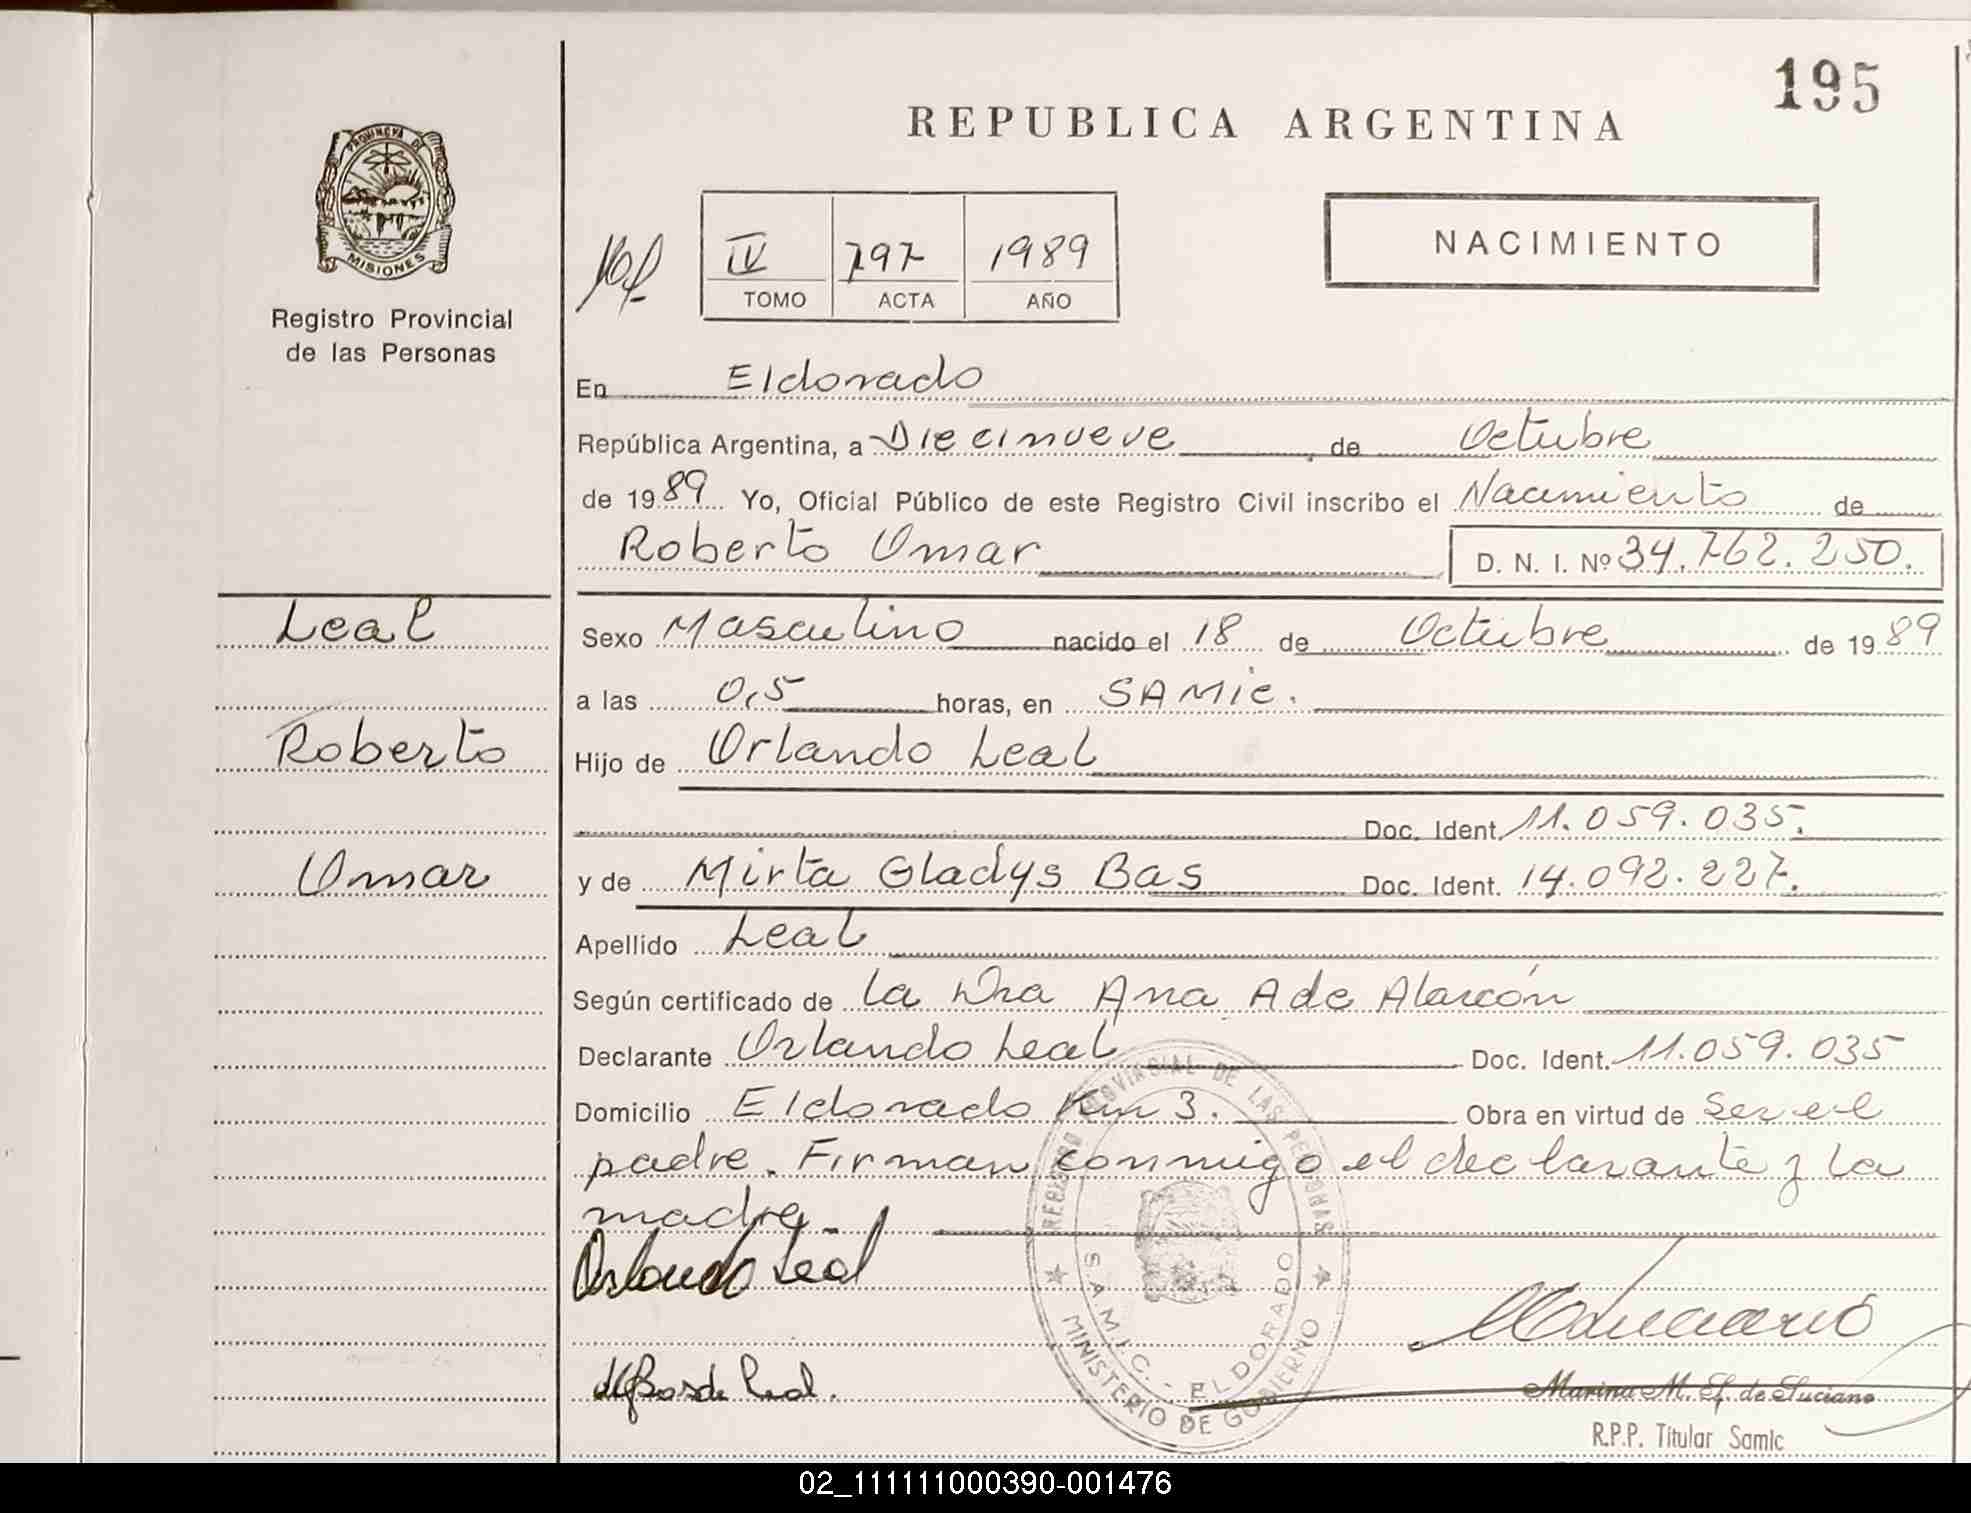 195
REPUBLICA ARGENTINA
PROVINCIA DE
MISIONES
Registro Provincial
de las Personas
IV 797 1989
TOMO ACTA AÑO
NACIMIENTO
En Eldorado
República Argentina, a Diecinueve de Octubre
de 1989 Yo, Oficial Público de este Registro Civil inscribo el Nacimiento de
Roberto Omar D. N. I. Nº 34.762.250.
Leal
Sexo Masculino nacido el 18 de Octubre de 1989
a las 0,5 horas, en SAMic.
Roberto
Hijo de Orlando Leal
Doc. Ident. 11.059.035.
Omar
y de Mirta Gladys Bas Doc. Ident. 14.092.227.
Apellido Leal
Según certificado de la Dra Ana A de Alarcón
Declarante Orlando Leal Doc. Ident. 11.059.035
Domicilio Eldorado Km 3. Obra en virtud de Ser el
padre. Firman conmigo el declarante y la
madre.
Orlando Leal
REGISTRO PROVINCIAL DE LAS PERSONAS
S.A.M.I.C. - ELDORADO
MINISTERIO DE GOBIERNO
Bas de Leal.
Marina M. de Luciano
R.P.P. Titular Samic
02_111111000390-001476